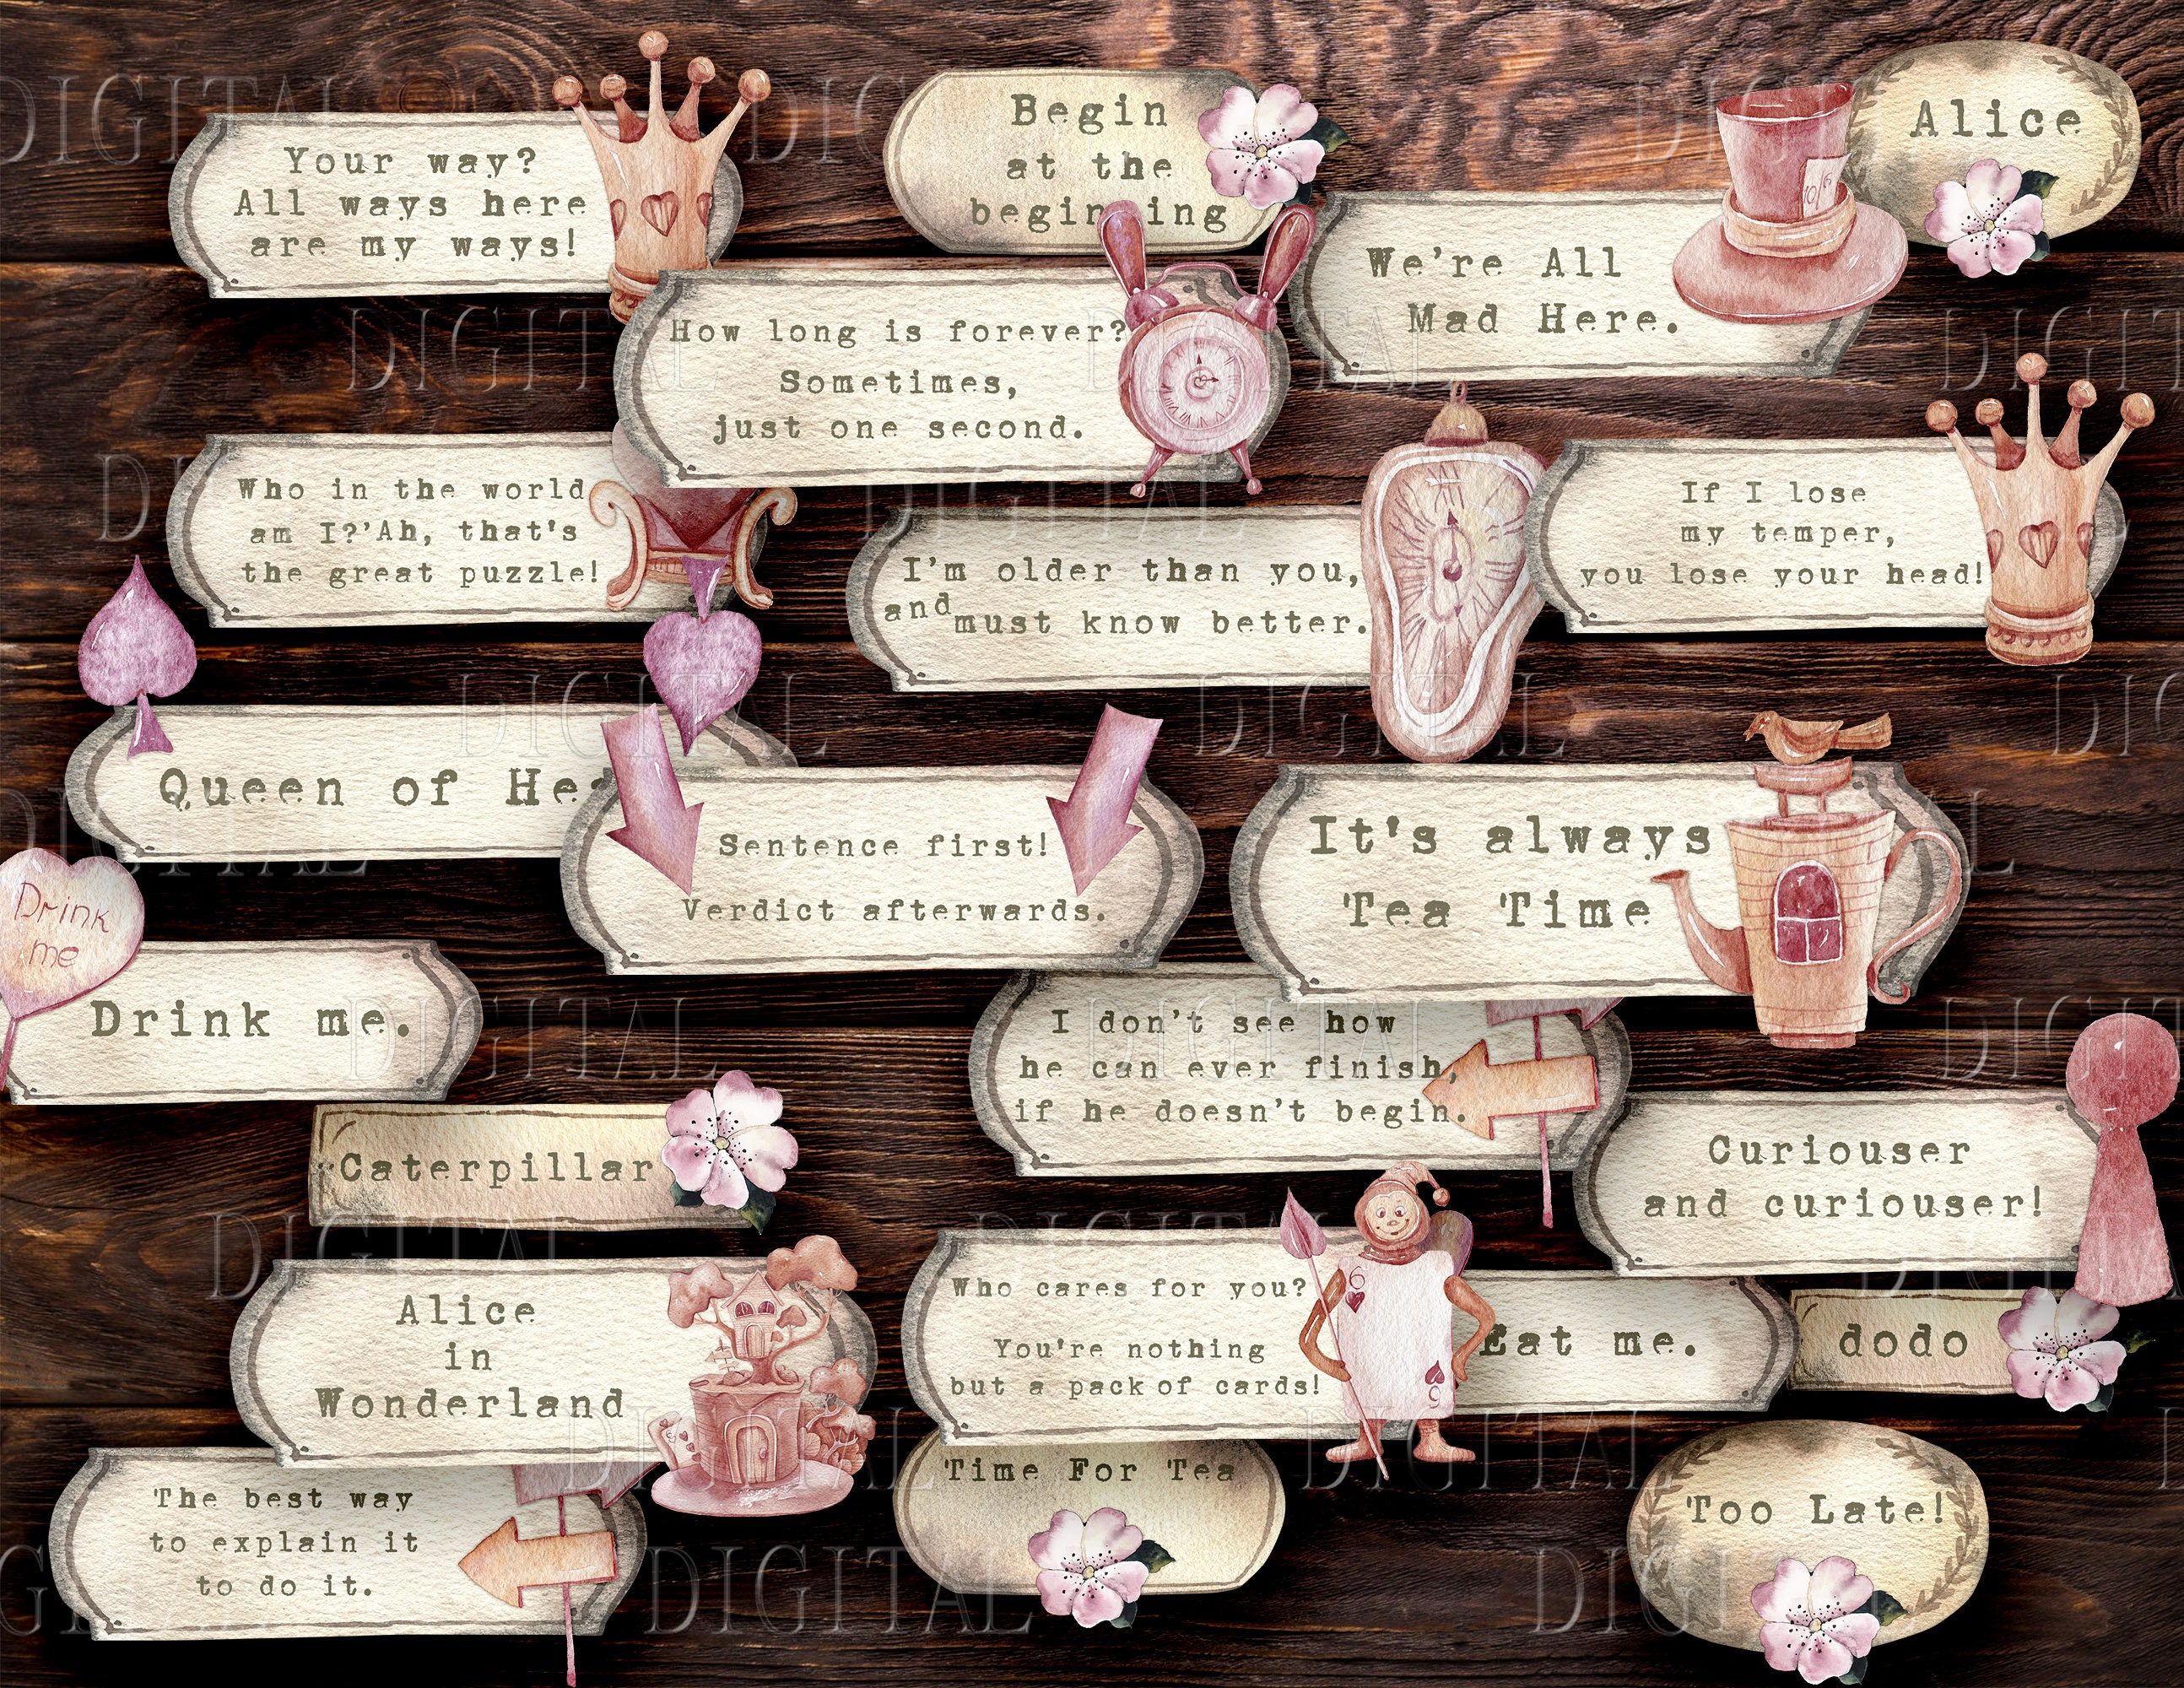 Your way?
All ways here
are my ways!
Begin
at the
beginning
Alice
10/6
We're All
Mad Here.
How long is forever?
Sometimes,
just one second.
Who in the world
am I?'Ah, that's
the great puzzle!
I'm older than you,
and must know better.
If I lose
my temper,
you lose your head!
Queen of
Sentence first!
Verdict afterwards.
It's always
Tea Time
Drink
me
Drink me.
I don't see how
he can ever finish,
if he doesn't begin.
Curiouser
and curiouser!
Caterpillar
Alice
in
Wonderland
Who cares for you?
You're nothing
but a pack of cards!
6
6
Eat me.
dodo
The best way
to explain it
to do it.
Time For Tea
Too Late!
DIGITAL
DIGITAL
DIGITAL
DIGITAL
DIGITAL
DIGITAL
DIGITAL
DIGITAL
DIGITAL
DIGITAL
DIGITAL